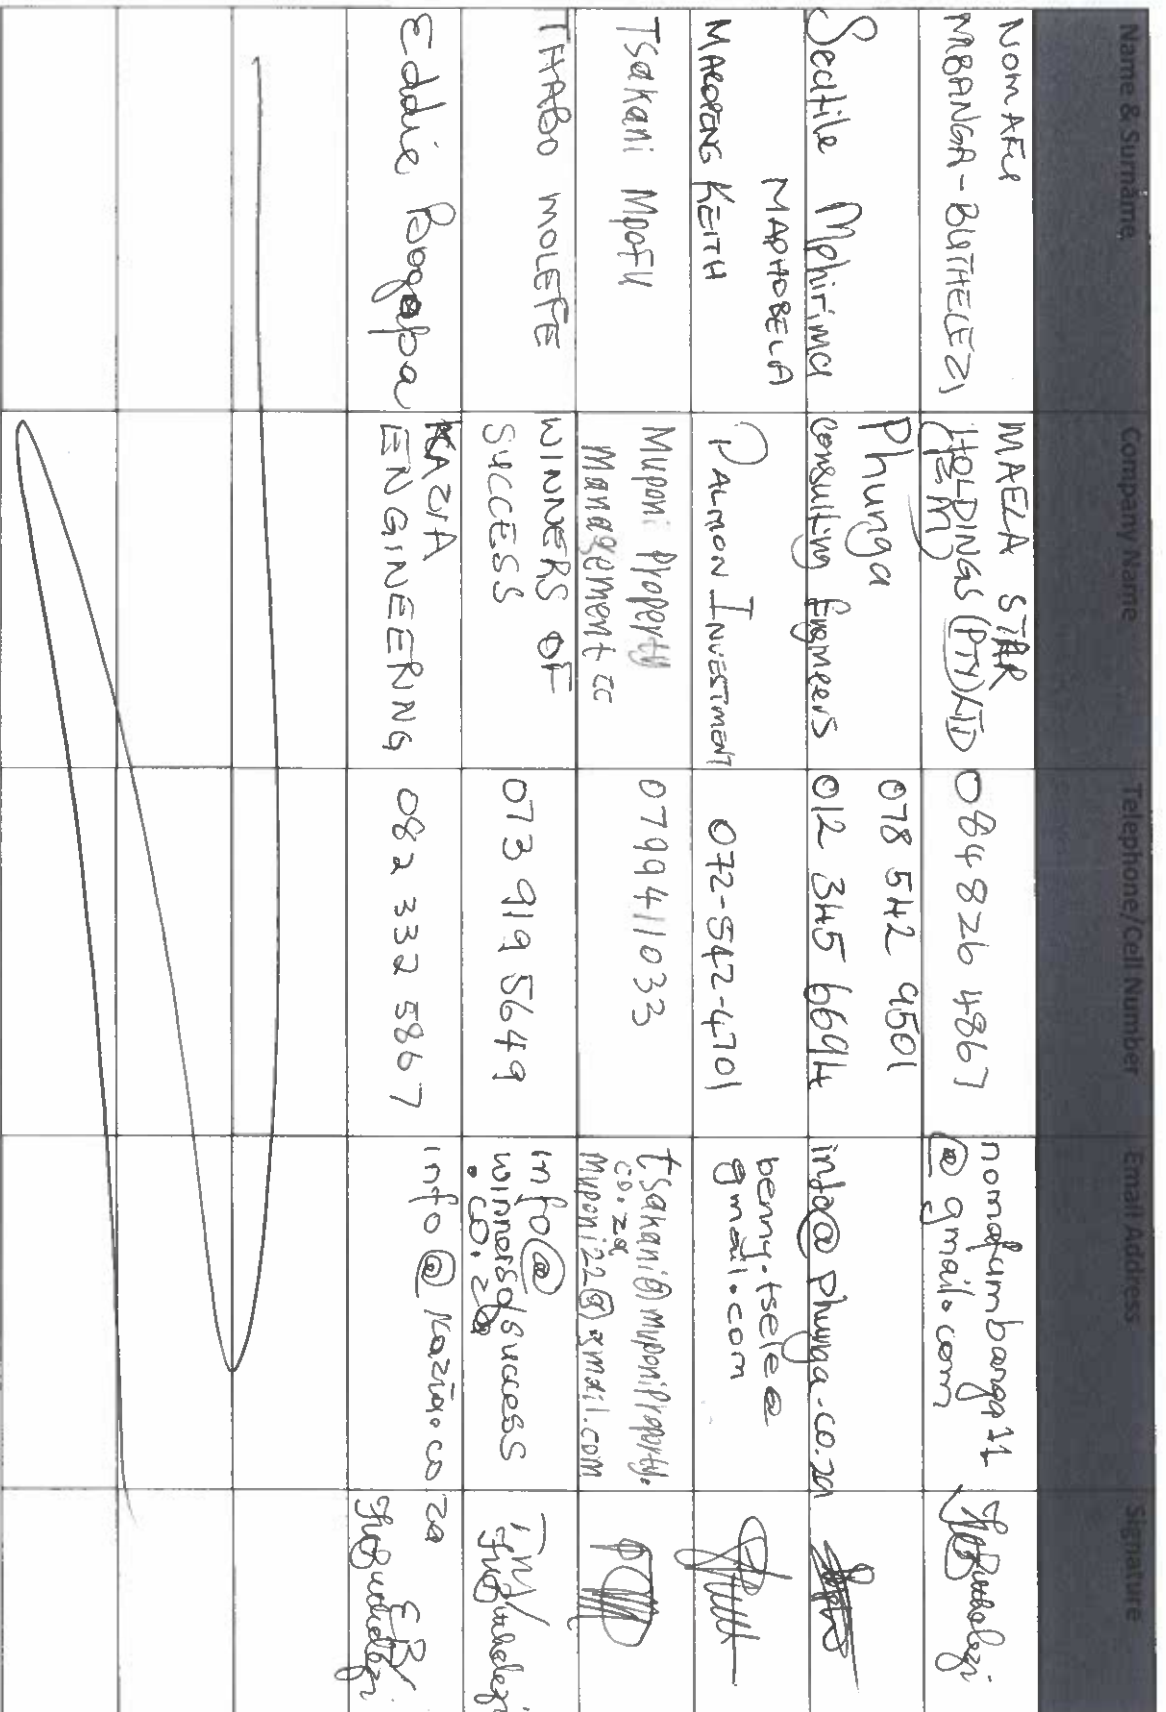 Name & Surname Company Name Telephone/Cell Number Email Address Signature
NOMAFU
MBANGA-BUTHELEZI
MAEZA STAR
HOLDINGS (PTY) LTD
084 826 4867
nomafumbanga11
@gmail.com
Seatile Mphirima
Phunga
Consulting Engineers
078 542 9501
012 345 6694
info@phunga.co.za
MAPHOBELA
MAROPENG KEITH
PALMON INVESTMENT
072-542-4701
benny.tsele@
gmail.com
Tsakani Mpofu
Muponi Property
Management cc
0799411033
tsakani@muponiproperty.
co.za
muponi22@gmail.com
THABO MOLEFE
WINNERS OF
SUCCESS
073 919 5649
info@
winnersofsuccess
.co.za
Eddie Bogopa
KAZIA
ENGINEERING
082 332 5867
info@kazia.co za
EB/